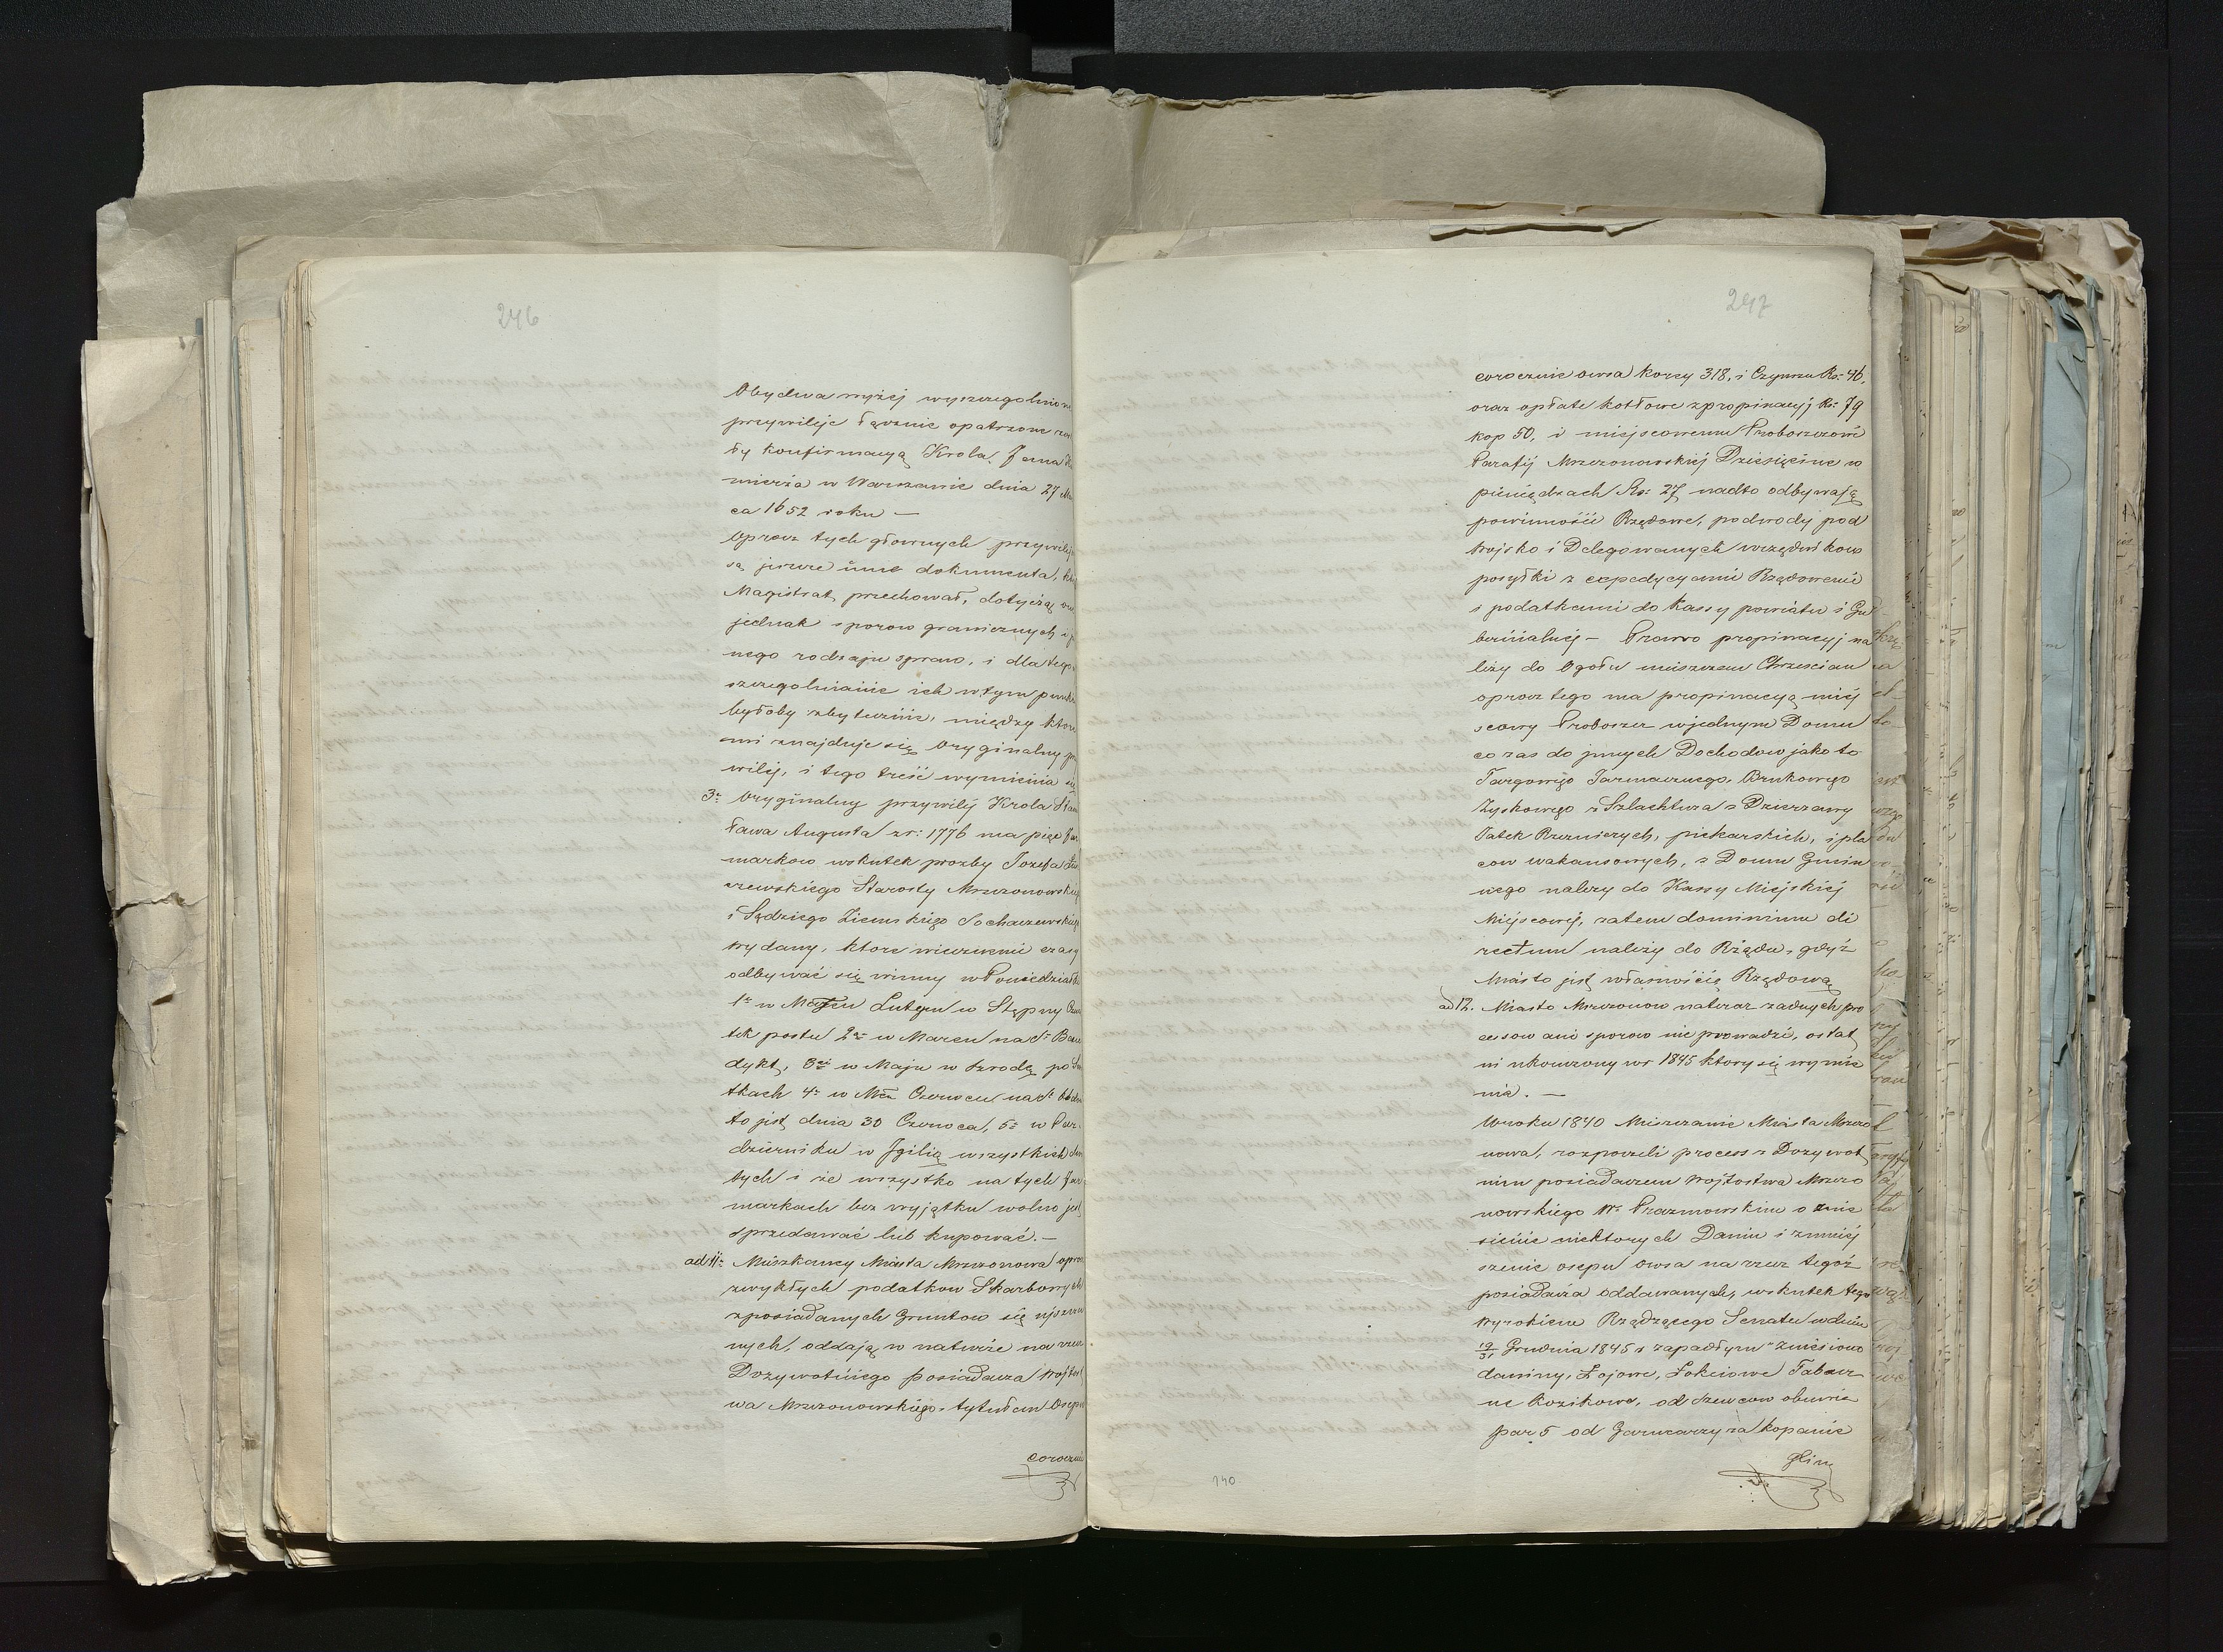 246
Obydwa wyżej wyszczegolnion
przywileje łącznie opatrzone zos
ły konfirmacyą Krola Jana Ka
mierza w Warszawie dnia 27 Ma
ca 1652 roku —
Oprocz tych głownych przywilej
są jeszcze inne dokumenta, któ
Magistrat przechował, dotyczą
jednak sporow granicznych i
nego rodzaju spraw, i dla tego
szczegolnianie ich w tym punkc
byłoby zbyteczne, między ktore
mi znajduje się Oryginalny prz
wilej, i tego treść wymienia się
3e Oryginalny przywilej Krola Stan
ława Augusta z r: 1776 na pięć Jar
markow wskutek prozby Jozefa
czewskiego Starosty Mszczonowskieg
i Sędziego Ziemskiego Sochaczewskieg
wydany, ktore wiecznemi czasy
odbywać się winny w Poniedziałk
1e w Mcu Lutym w Stępny Czwa
tek postu 2e w Marcu na St Bene
dykt, 3e w Maju w Srodę po Św
tkach 4e w Mcu Czerwcu na St
to jest dnia 30 Czerwca, 5e w Paz-
dzierniku w Jgilią wszystkich Świę
tych i że wszystko na tych Jar
markach bez wyjątku wolno jest
sprzedawać lub kupować. —
ad 11e Mieszkancy Miasta Mszczonowa oprocz
zwykłych podatkow Skarbowych
z posiadanych Gruntow się
nych, oddają w naturze na rzecz
Dozywotniego posiadacza Wojtost
wa Mszczonowskiego tytułem Osepu
corocznie
247
corocznie owsa korcy 318, i Czynszu Rs: 46,
oraz opłate kotłowe z propinacyj Rs: 79
kop 50, i miejscowemu Proboszczowi
Parafij Mszczonowskiej Dziesięcine w
pieniędzach Rs: 27, nadto odbywają
powinności Rządowe, podwody pod
Wojsko i Delegowanych urzędnikow
posyłki z expedycyami Rządowemi
i podatkami do Kassy powiatu i Gu
bernialnej — Prawo propinacyj na
leży do Ogołu mieszczan Chrzescian
oprocz tego ma propinacyą miej
scowy Proboszcz w jednym Domu
co zas do jnnych Dochodow jako to
Targowego Jarmacznego, Brukowego
Zyskowego z Szlachtuza z Dzierzawy
Jatek Rzezniczych, piekarskich, i pla
cow wakansowych, z Domu Gmin
nego nalezy do Kassy Miejskiej
Miejscowej, zatem dominium di
rectum należy do Rządu, gdyż
Miasto jest własnością Rządową
ad 12. Miasto Mszczonow nateraz zadnych pro
cessow ani sporow nie prowadzi, ostat
ni ukonczony w r 1845 ktory się wymie
nia. —
W roku 1840 Mieszczanie Miasta Mszczo
nowa, rozpoczeli process z Dozywot
nim posiadaczem Wojtostwa Mszczo
nowskiego W. Prazmowskim o znie
sienie niektorych Danin i zmniej
szenie osepu Owsa na rzecz tegoż
posiadacza oddawanych, wskutek tego
Wyrokiem Rządzącego Senatu w dniu
19/31 Grudnia 1845 r zapadłym "zniesiono
daniny, Łojowe, Łokciowe Tabacz
ne Kozikowe, od Szewcow obuwia
par 5 od Garncarzy za kopanie
gliny
140